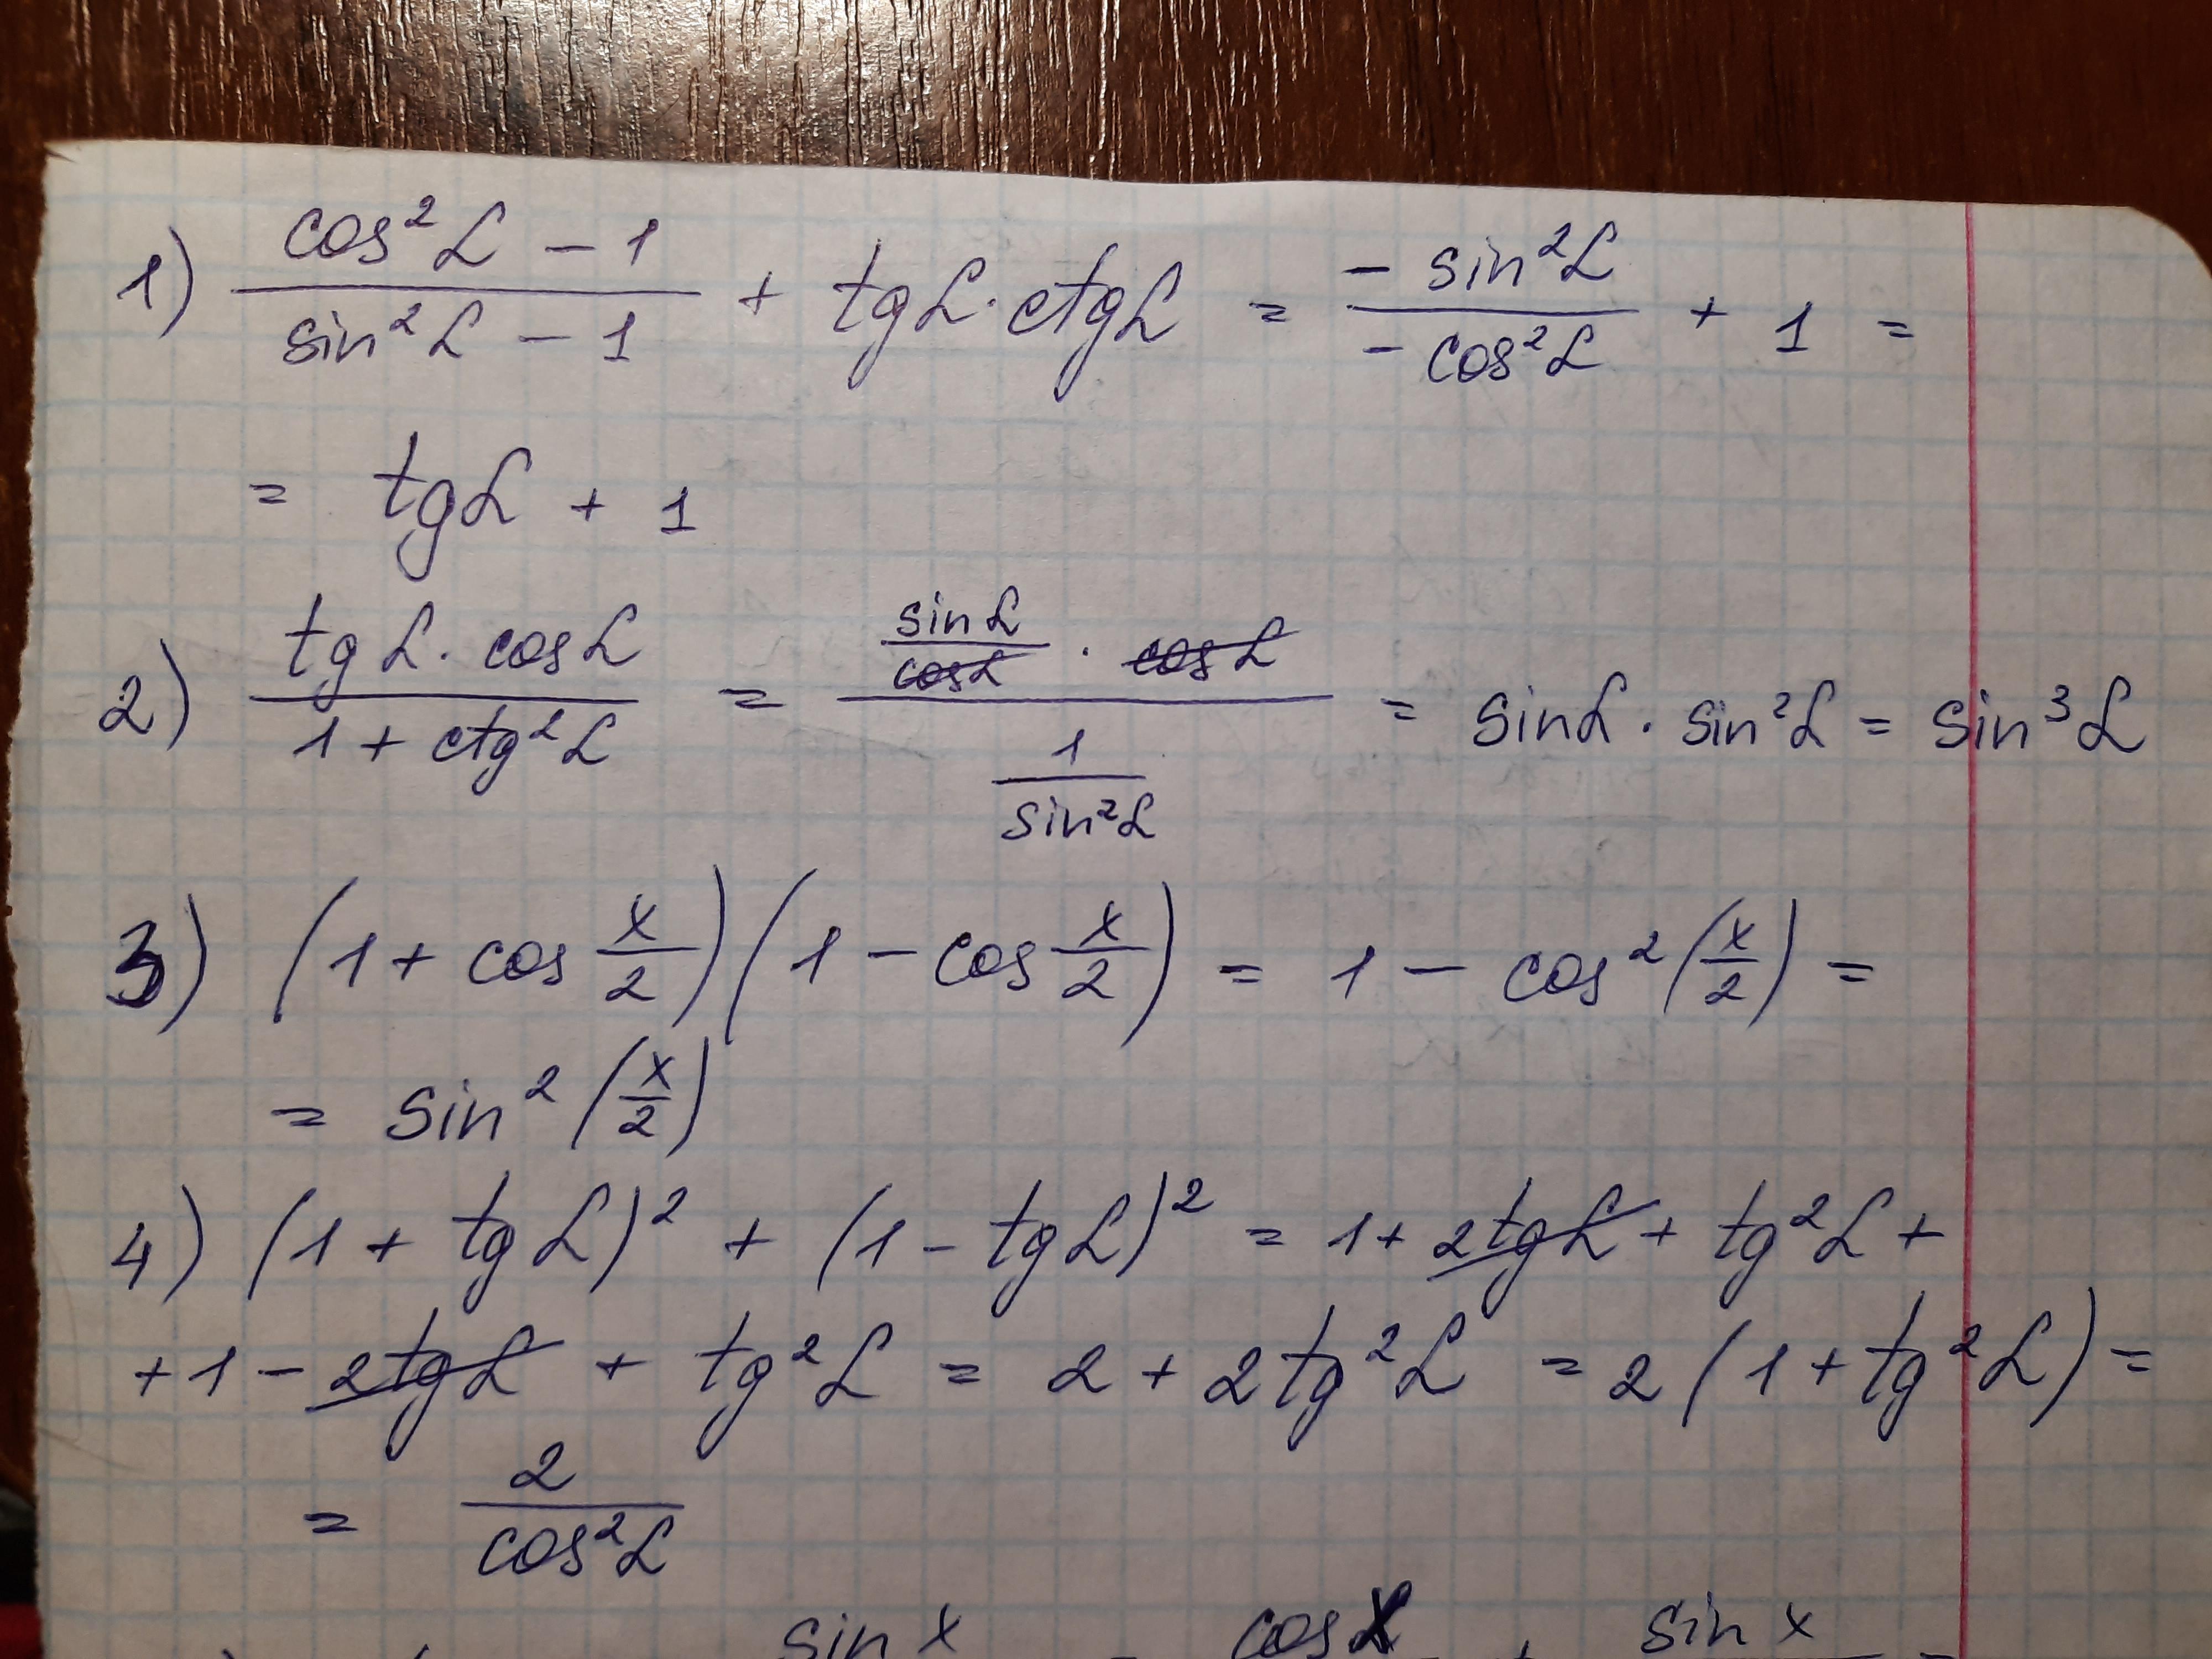 1) (cos²α - 1)/(sin²α - 1) + tgα · ctgα = (-sin²α)/(-cos²α) + 1 =
= tgα + 1
2) (tgα · cosα)/(1 + ctg²α) = (sinα/cosα · cosα)/(1/sin²α) = sinα · sin²α = sin³α
3) (1 + cos x/2)(1 - cos x/2) = 1 - cos²(x/2) =
= sin²(x/2)
4) (1 + tgα)² + (1 - tgα)² = 1 + 2tgα + tg²α +
+ 1 - 2tgα + tg²α = 2 + 2tg²α = 2(1 + tg²α) =
= 2/cos²α
sin x = cos x + sin x =